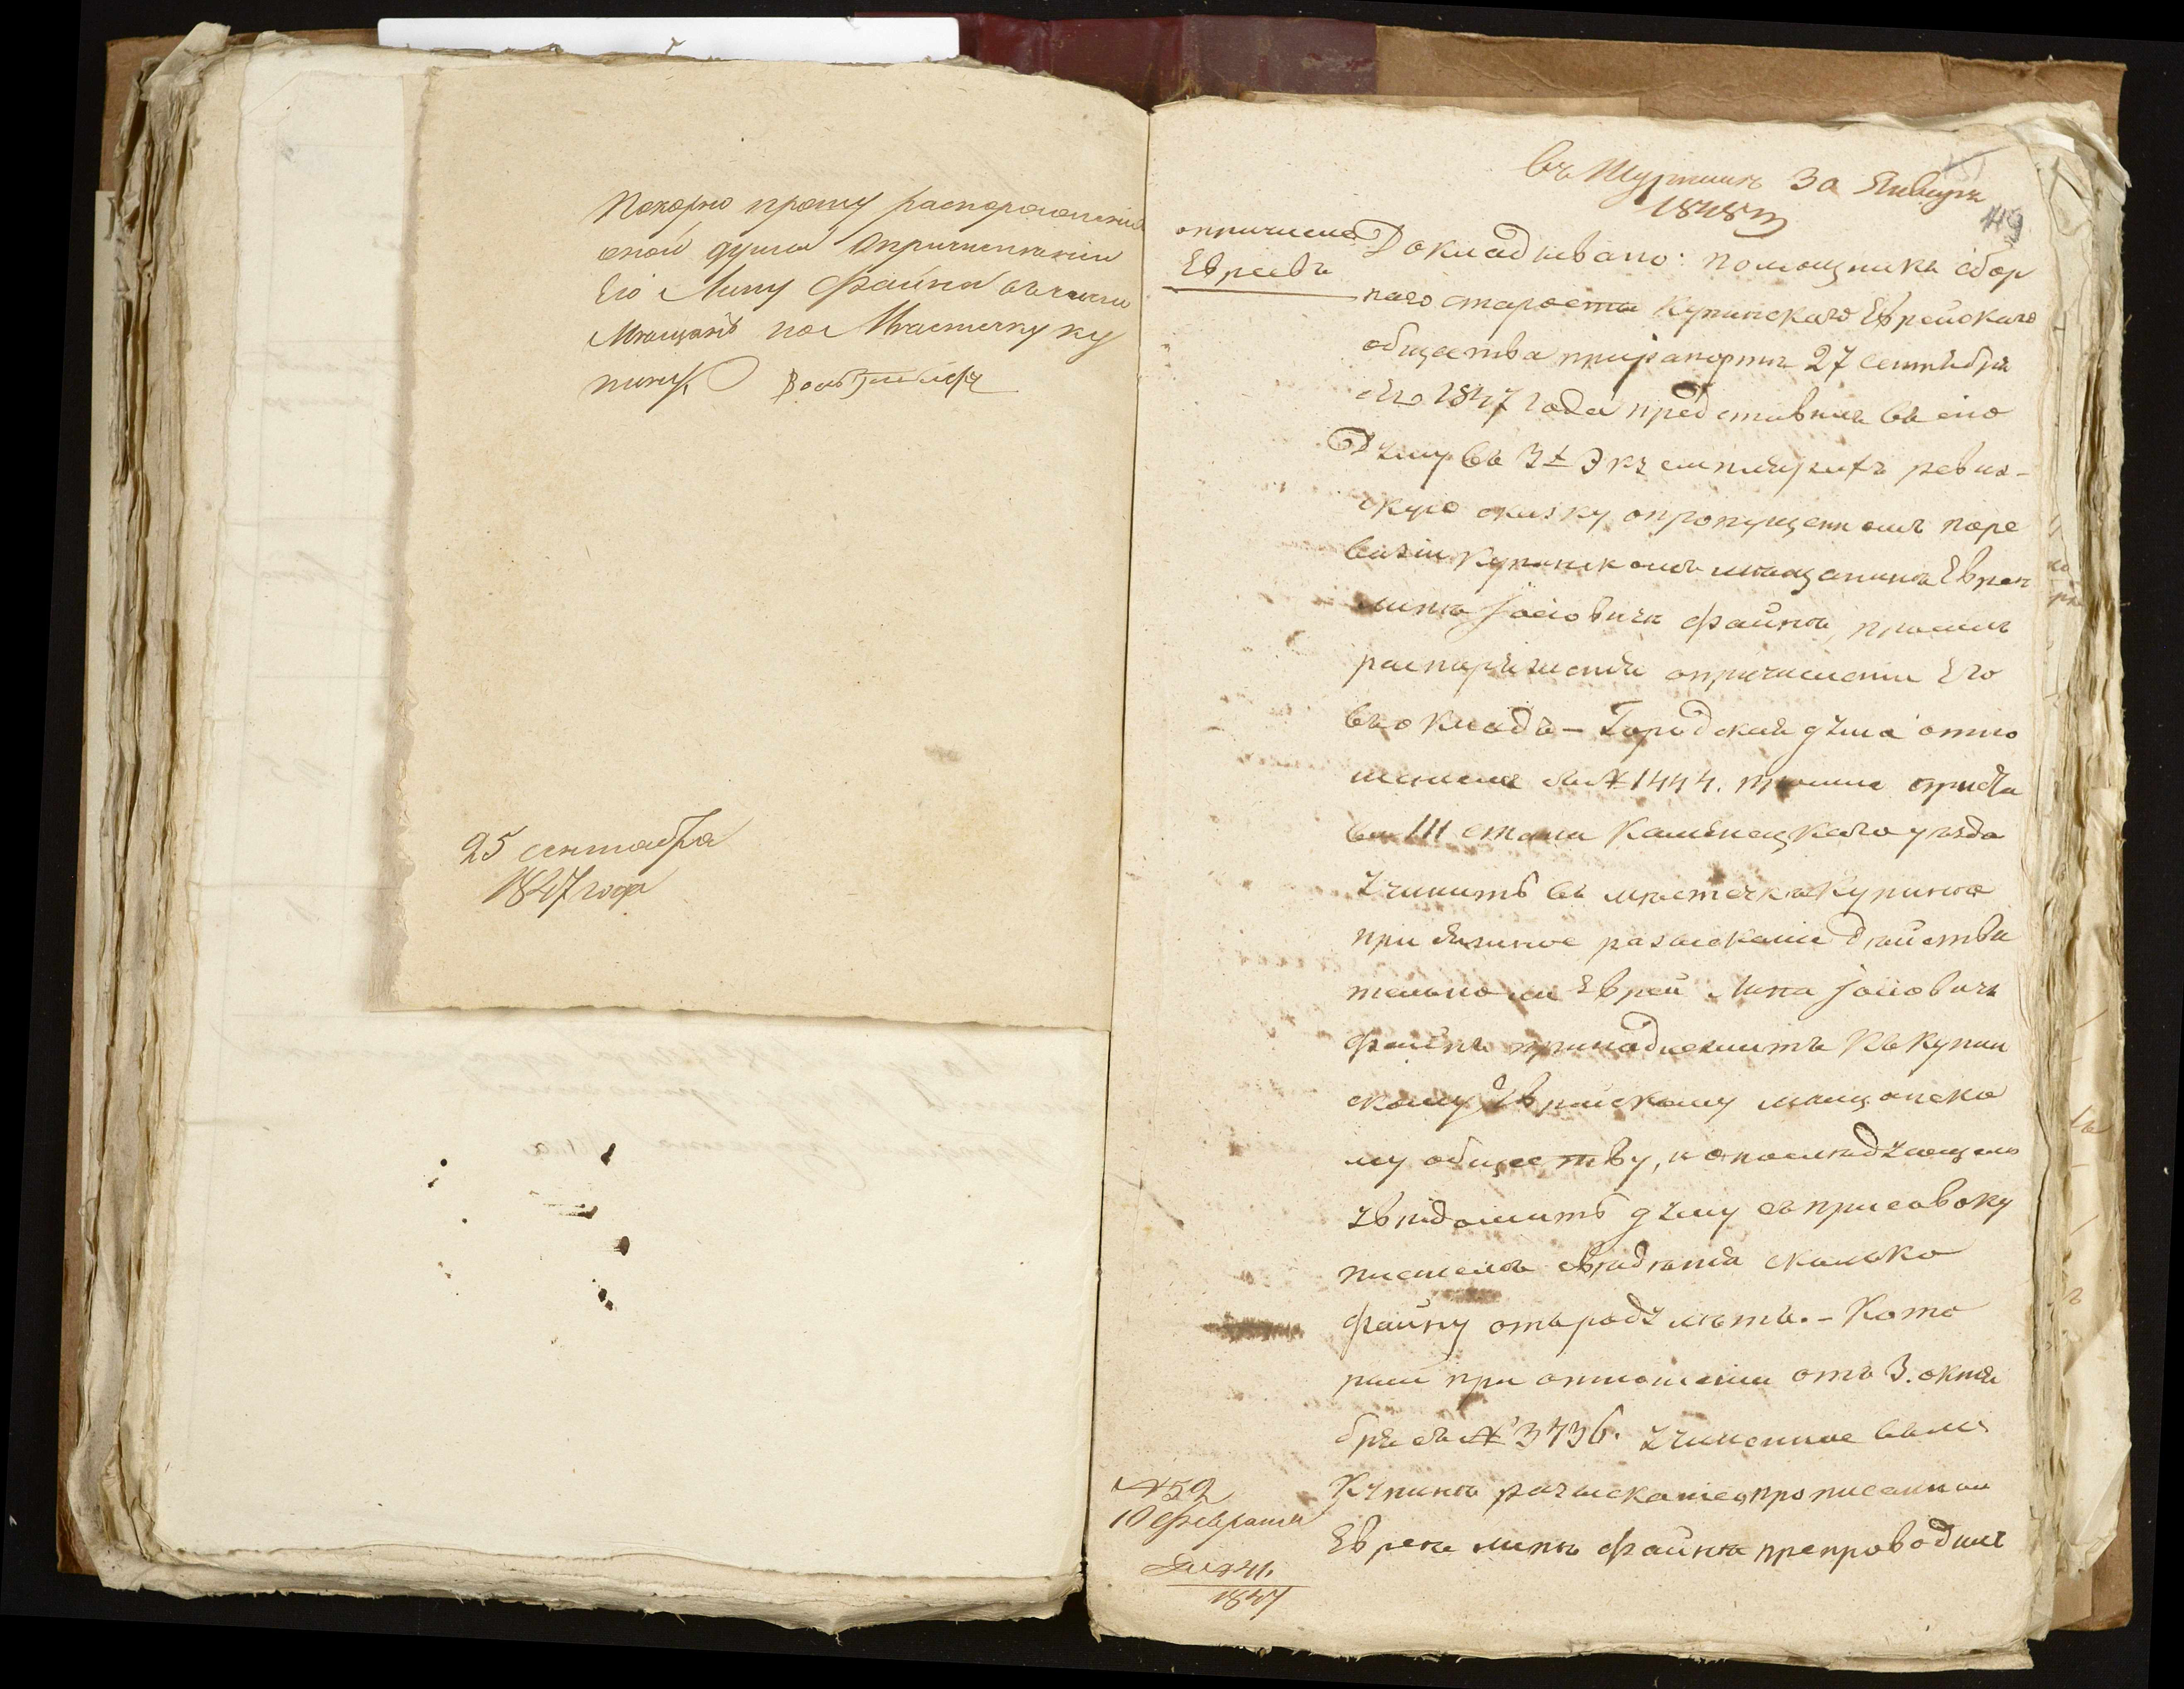 Покорно прошу распоряженія
оной думы опричисленіи
Его Липу Файна въ число
Мѣщанъ по Мѣстечку Ку
пину
25 сентября
1847 года
въ Журналъ За Январь
1848
149
опричислен
Евреевъ
Докладывано: помощникъ сбор
наго старосты Купинскаго Еврейскаго
общества при рапортѣ 27 Сентября
1847 года представилъ въ сію
Думу въ 3х Экземплярахъ ревиз-
скую сказку опропущенномъ по ре
визіи Купинскомъ мѣщанинѣ Евреѣ
Липѣ Іосіовичѣ Файнѣ, просилъ
распоряженія опричисленіи Его
въ окладъ – Городская дума отно
шеніемъ за № 1444. просила приста
ва III стана Каменецкаго уѣзда
учинить въ мѣстечкѣ Купинѣ
разысканіе дѣйстви
тельно ли Еврей Липа Іосіовичъ
Файнъ принадлежитъ къ Купин
скому Еврейскому мѣщанско
му обществу, и опослѣдующемъ
увѣдомить думу съ присовоку
пленіемъ свѣденія сколько
Файну отъ роду лѣтъ. – Кото
рый при отношеніи отъ 3. октя
бря за № 3736. учиненное въ м.
Купинѣ разысканіе о прописанном
Евреѣ Липѣ Файнѣ препроводилъ
№ 52
10 февраля
1847